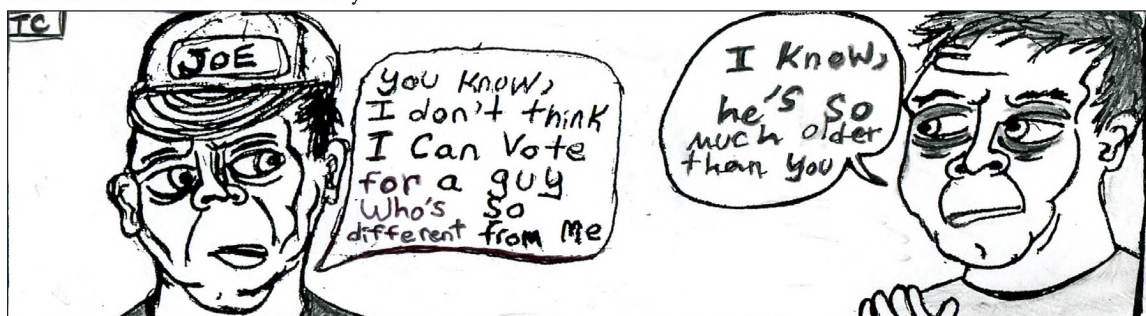 TC
JOE
you know,
I don't think
I Can Vote
for a guy
Who's so
different from Me
I Know,
he's so
much older
than you